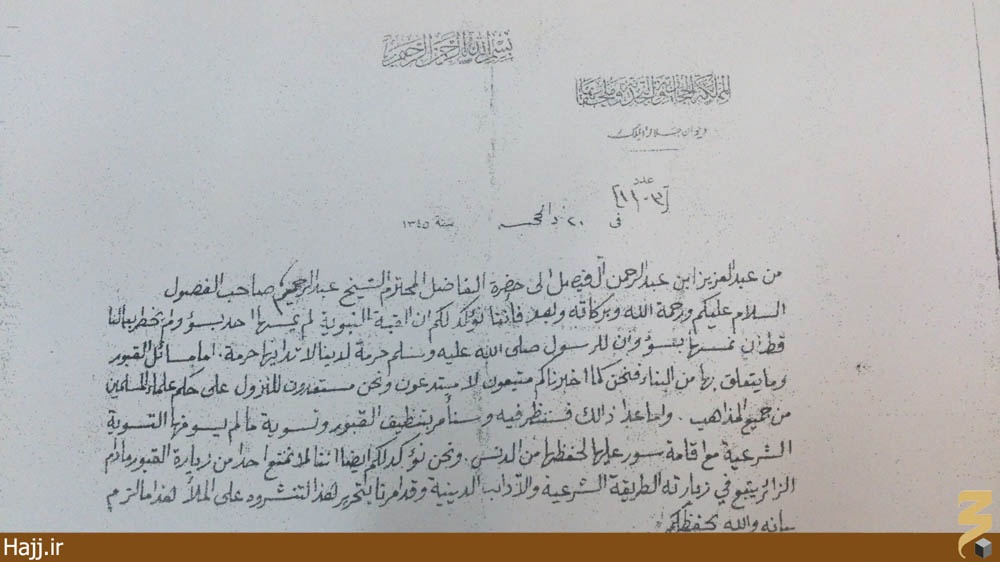 بسم الله الرحمن الرحيم
المملكة الحجازية والنجدية وملحقاتها
ديوان جلالة الملك
عدد
في ٢٠ ذالحجه سنة ١٣٤٥
من عبدالعزيز ابن عبدالرحمن آل فيصل الى حضرة الفاضل المحترم الشيخ عبدالرحيم صاحب الفصول
السلام عليكم ورحمة الله وبركاته وبعد فأننا نؤكد لكم ان القبة النبوية لم يمسها احد بسؤ ولم يخطر ببالنا
قط ان نمسها بسؤ وان للرسول صلى الله عليه وسلم حرمة لدينا لا تدانيها حرمة. اما مسائل القبور
وما يتعلق بها من البناء فنحن كما اخبرناكم متبعون لا مبتدعون ونحن مستعدون للنزول على حكم علماء المسلمين
من جميع المذاهب . واما عدا ذالك فسننظر فيه وسنأمر بتنظيف القبور وتسوية ما لم يسو فيها التسوية
الشرعية مع اقامة سور عليها لحفظها من الدنس. ونحن نؤكد لكم ايضا اننا لا نمنع احد من زيارة القبور مادام
الزائر يتبع في زيارته الطريقة الشرعية والآداب الدينية وقد امرنا بتحرير هذا لتنشروه على الملأ هذا ما لزم
بيانه والله يحفظكم
Hajj.ir